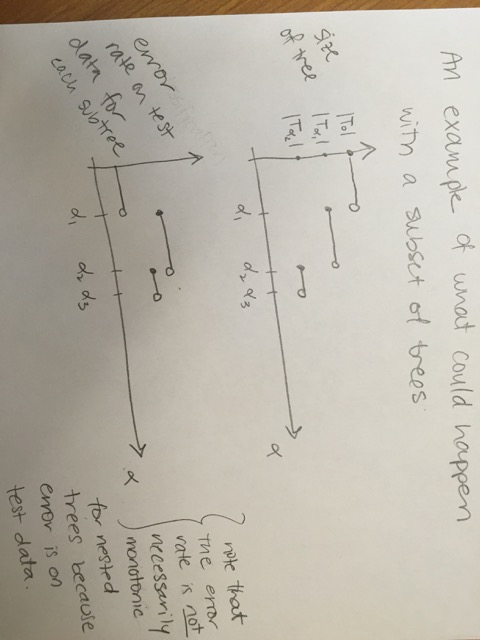 An example of what could happen
with a subset of trees.
size
of tree
|T₀|
|Tα₁|
|Tα₂|
α₁
α₂
α₃
α
error
rate on test
data for
each subtree
α₁
α₂
α₃
α
note that
the error
rate is not
necessarily
monotonic
for nested
trees because
error is on
test data.